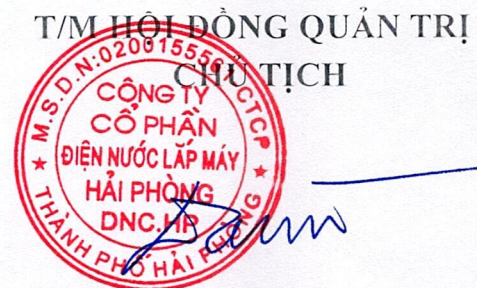 T/M HỘI ĐỒNG QUẢN TRỊ
CHỦ TỊCH
M.S.D.N:0200155561-CTCP
CÔNG TY
CỔ PHẦN
ĐIỆN NƯỚC LẮP MÁY
HẢI PHÒNG
DNC.HP
THÀNH PHỐ HẢI PHÒNG